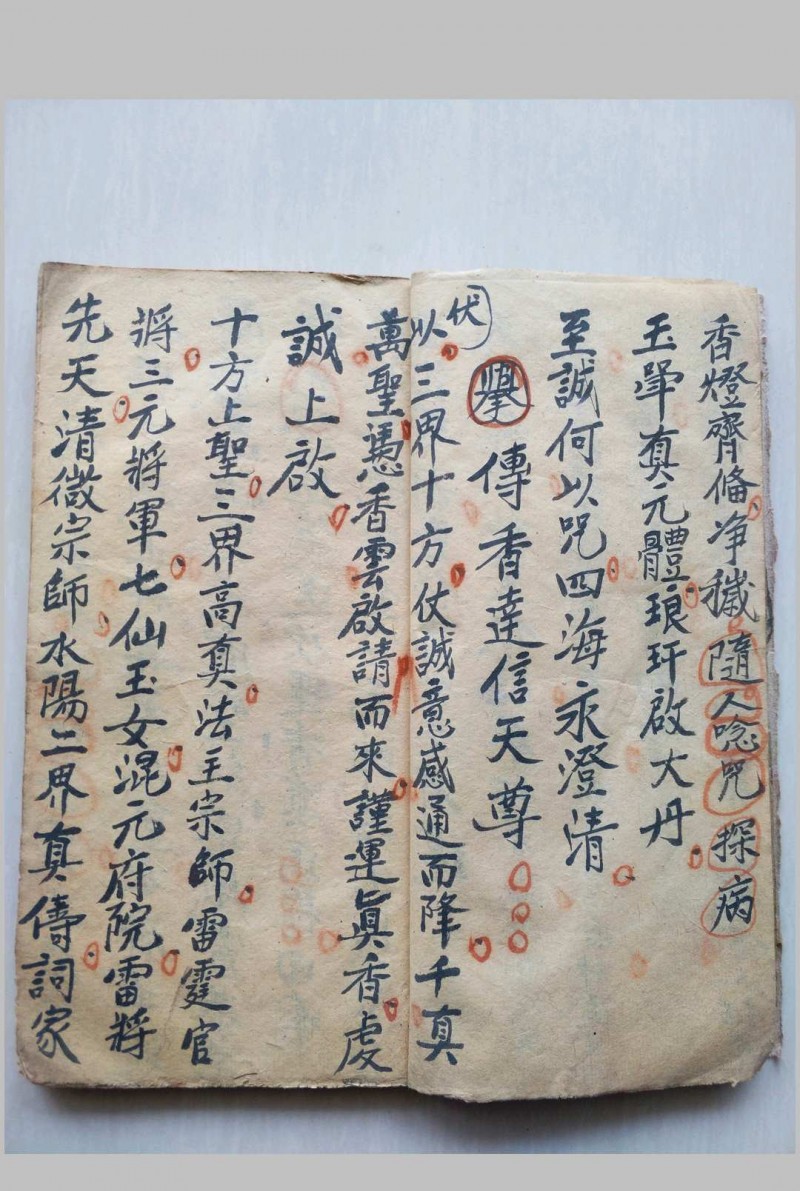 香燈齊俻净穢隨人唸咒探病
玉斝真元體琅玕啟大丹
至誠何以咒四海永澄清
舉傳香達信天尊
伏以三界十方仗誠意感通而降千真
萬聖憑香雲啟請而來謹運眞香虔
誠上啟
十方上聖三界高真法主宗師雷霆官
將三元將軍七仙玉女混元府院雷將
先天清微宗師水陽二界真儔詞家